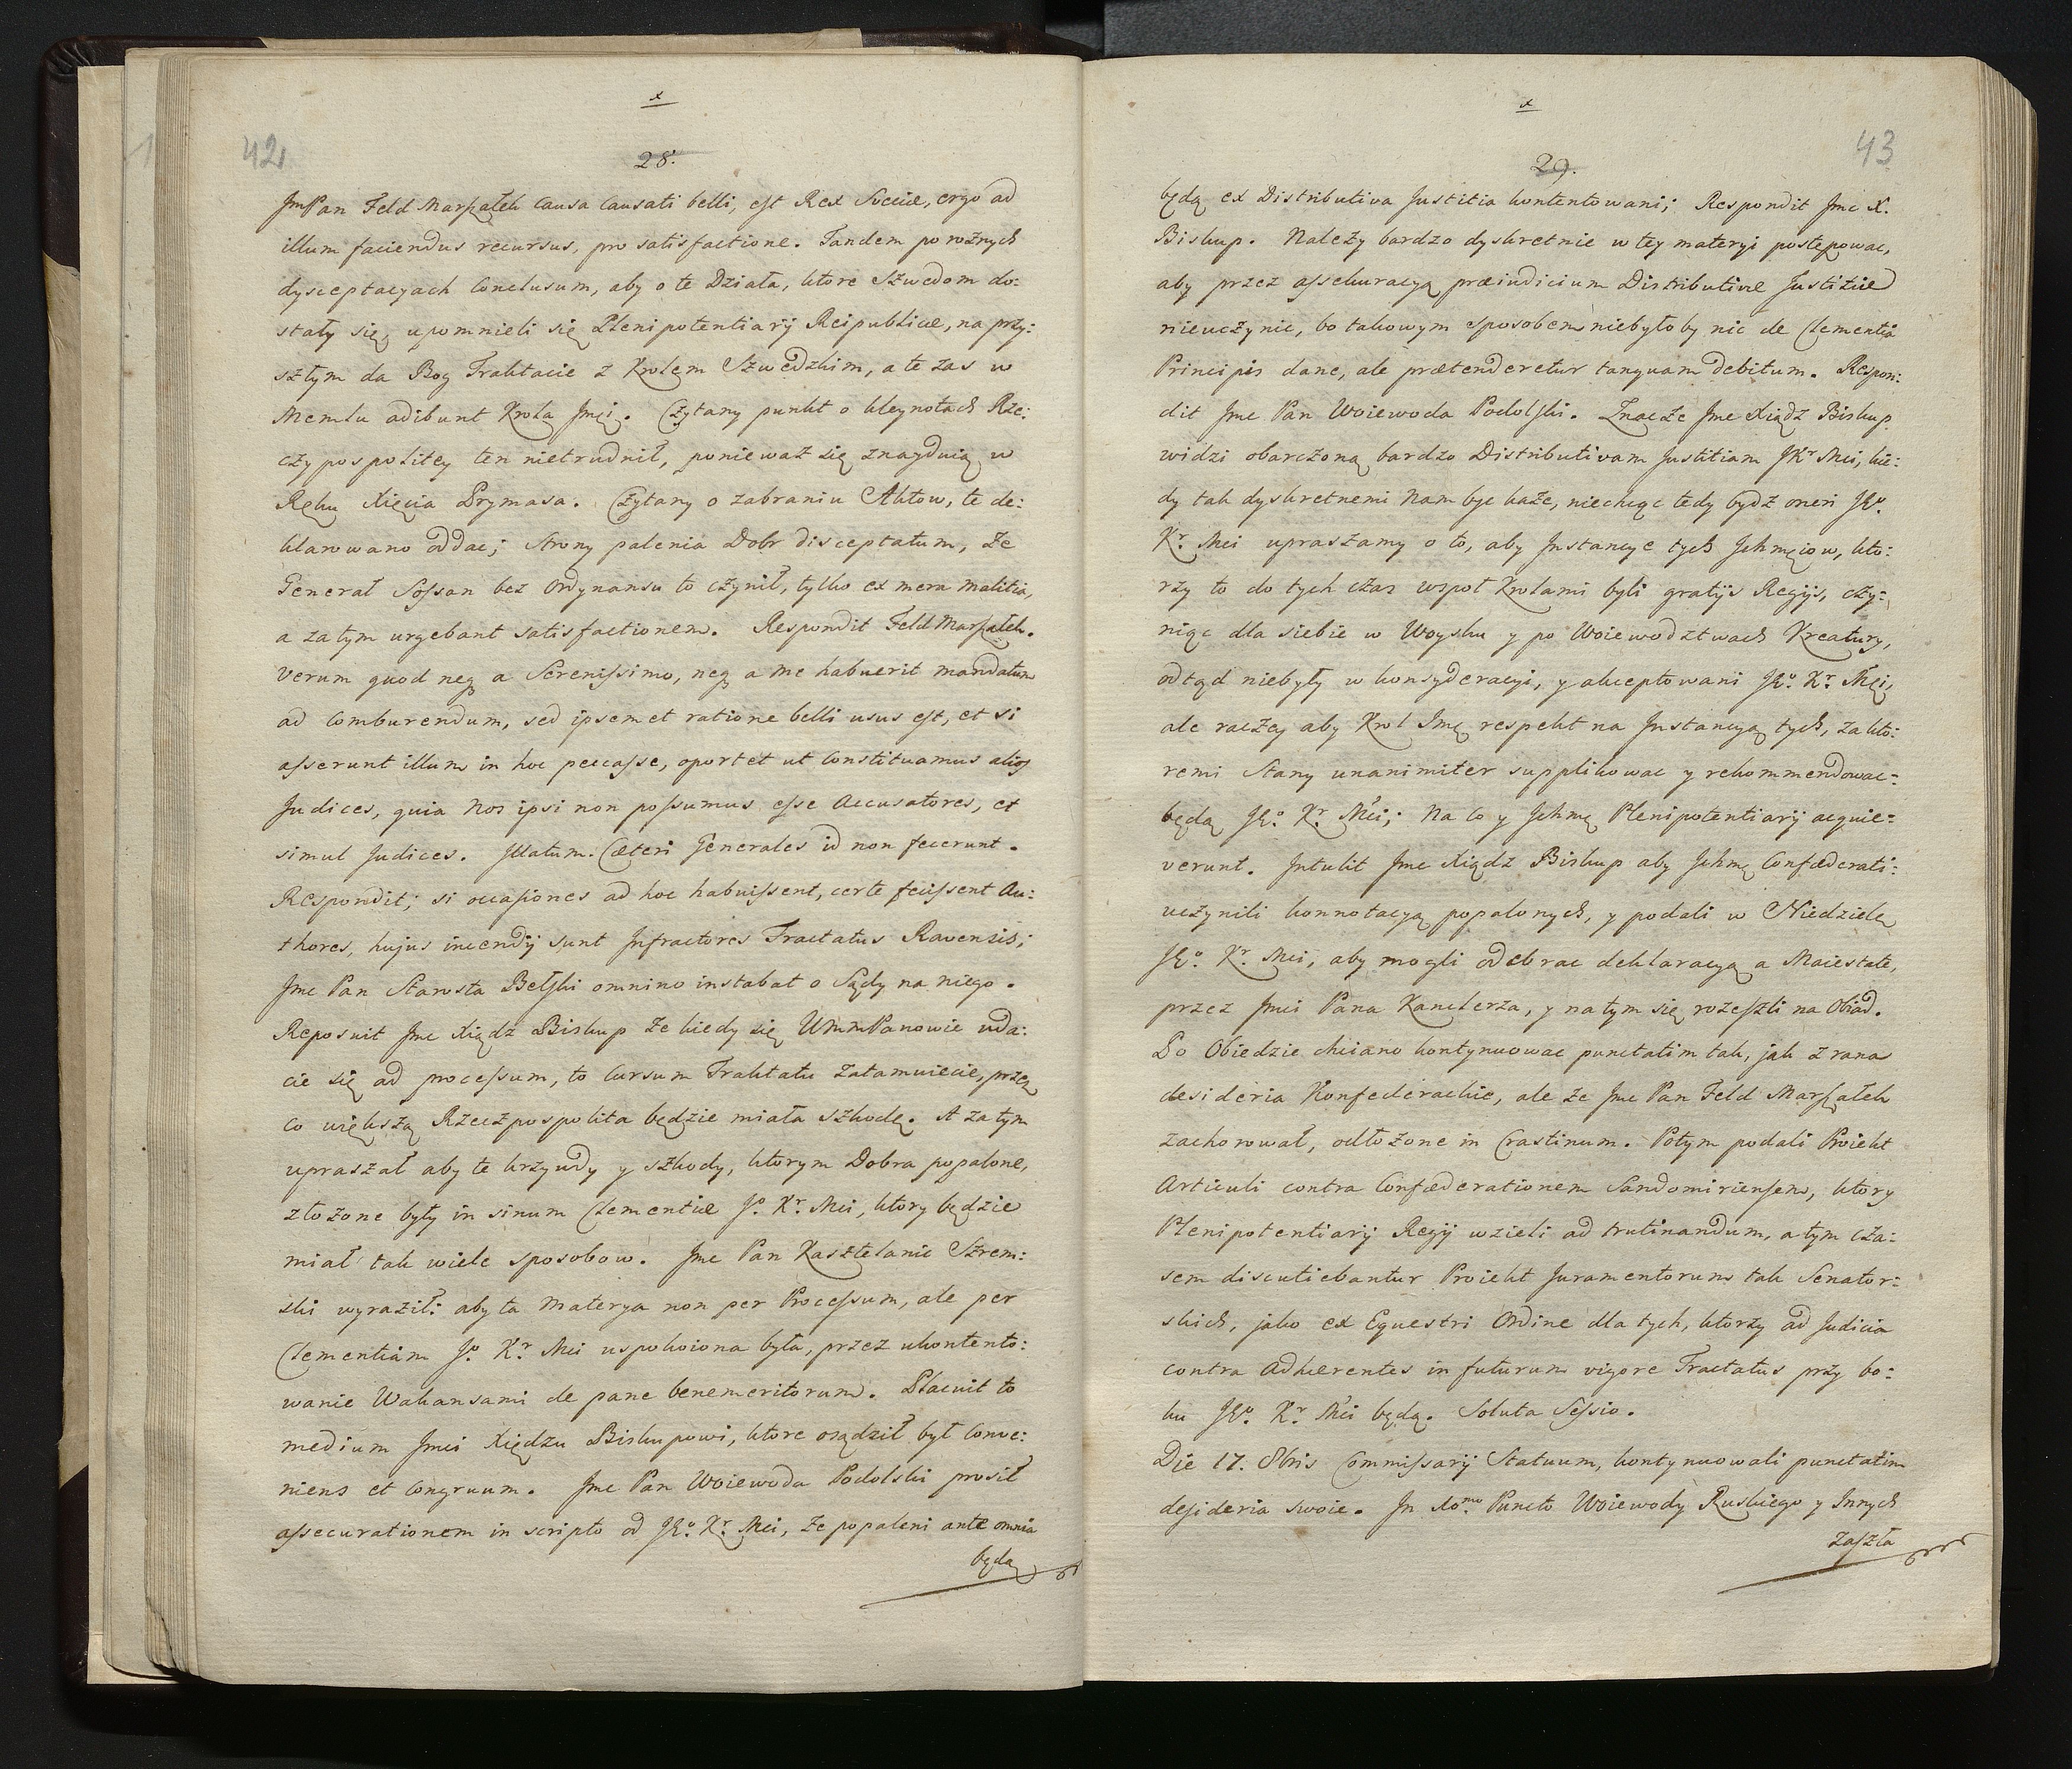 x
42
28.
JmPan Feld Marszałek Causa Causati belli, est Rex Sveciæ, ergo ad
illum faciendus recursus, pro satisfactione. Tandem po rożnych
dysceptacyach Conclusum, aby o te Działa, ktore Szwedom do:
stały się, upomnieli się Plenipotentiarij Reipublicæ, na przy:
szłym da Bog Traktacie z Krolem Szwedzkim, a te zas w
Memlu adibunt Krola Jmći. Czytany punkt o kleynotach Rze:
czypospolitey ten nietrudnił, ponieważ się znayduią w
Ręku Xięcia Prymasa. Czytany o zabraniu Aktow, te de:
klarowano oddac; strony palenia Dobr disceptatum, że
Generał Sossan bez Ordynansu to czynił, tylko ex mera malitia,
a zatym urgebant satisfactionem. Respondit Feld Marszałek.
Verum quod neq a Serenissimo, neq a me habuerit mandatum
ad Comburendum, sed ipsemet ratione belli usus est, et si
asserunt illum in hoc peccasse, oportet ut Constituamus alios
Judices, quia Nos ipsi non possumus esse Accusatores, et
simul Judices. Illatum. Cæteri Generales id non fecerunt.
Respondit; si occasiones ad hoc habuissent, certe fecissent Au:
thores, hujus incendij sunt Infractores Tractatus Ravensis;
Jmc Pan Starosta Bełski omnino instabat o Sądy na niego.
Reposuit Jmc Xiądz Biskup że kiedy się WmmPanowie uda:
cie się ad processum, to Cursum Traktatu zatamuiecie, przez
co większą Rzeczpospolita będzie miała szkodę. A zatym
upraszał aby te krzywdy y szkody, ktorym Dobra popalone,
złożone były in sinum Clementiæ Jº. Kr. Mći, ktory będzie
miał tak wiele sposobow. Jmc Pan Kasztelanic Szrem:
ski wyraził: aby ta materya non per Processum, ale per
Clementiam Jº. Kr. Mći uspokoiona była, przez ukontento:
wanie Wakansami de pane benemeritorum. Placuit to
medium Jmći Xiędzu Biskupowi, ktore osądził był Conve:
niens et Congruum. Jmc Pan Woiewoda Podolski prosił
assecurationem in scripto od JEº. Kr. Mći, że popaleni ante omnia
będą
x
43
29.
będą ex Distributiva Justitia kontentowani; Respondit Jmc X.
Biskup. Należy bardzo dyskretnie w tey materyi postępowac,
aby przez assekuracyą præiudicium Distributivæ Justitiæ
nieuczynic, bo takowym sposobem niebyłoby nic de Clementia
Principis dane, ale prætenderetur tanquam debitum. Respon:
dit Jmc Pan Woiewoda Podolski. Znac że Jmc Xiądz Biskup
widzi obarczoną bardzo Distributivam Justitiam JKr Mći, kie:
dy tak dyskretnemi Nam byc każe, niechcąc tedy bydz oneri JEº.
Kr. Mći upraszamy o to, aby Instancye tych Ichmciow, kto:
rzy to do tych czas wspoł Krolami byli gratijs Regijs, czy:
niąc dla siebie w Woysku y po Woiewodztwach Kreatury,
odtąd niebyły w konsyderacyi, y akceptowani JEº. Kr. Mći,
ale raczey aby Krol Jmć respekt na Instancyą tych, za kto:
remi Stany unanimiter supplikowac y rekommendowac=
będą JEº. Kr. Mći; Na co y Ichmc Plenipotentiarij acquie:
verunt. Intulit Jmc Xiądz Biskup aby Ichmc Confæderati:
uczynili konnotacyą popalonych, y podali w Niedzielę
JEº. Kr. Mći, aby mogli odebrac deklaracyą a Maiestate,
przez Jmci Pana Kanclerza, y na tym się rozeszli na Obiad.
Po Obiedzie chciano kontynuowac punctatim tak, jak z rana
desideria Konfederackie, ale że Jmc Pan Feld Marszałek
zachorował, odłożone in Crastinum. Potym podali Proiekt
Articuli contra Confæderationem Sandomiriensem, ktory
Plenipotentiarij Regij wzieli ad trutinandum, a tym cza:
sem discutiebantur Proiekt Juramentorum tak Senator:
skich, jako ex Equestri Ordine dla tych, ktorzy ad Judicia
contra Adhærentes in futurum vigore Tractatus przy bo:
ku JEº. Kr. Mći będą. Soluta Sessio.
Die 17. 8bris Commissarij Statuum, kontynuowali punctatim
desideria swoie. In 10mo Puncto Woiewody Ruskiego y Innych
zaszła